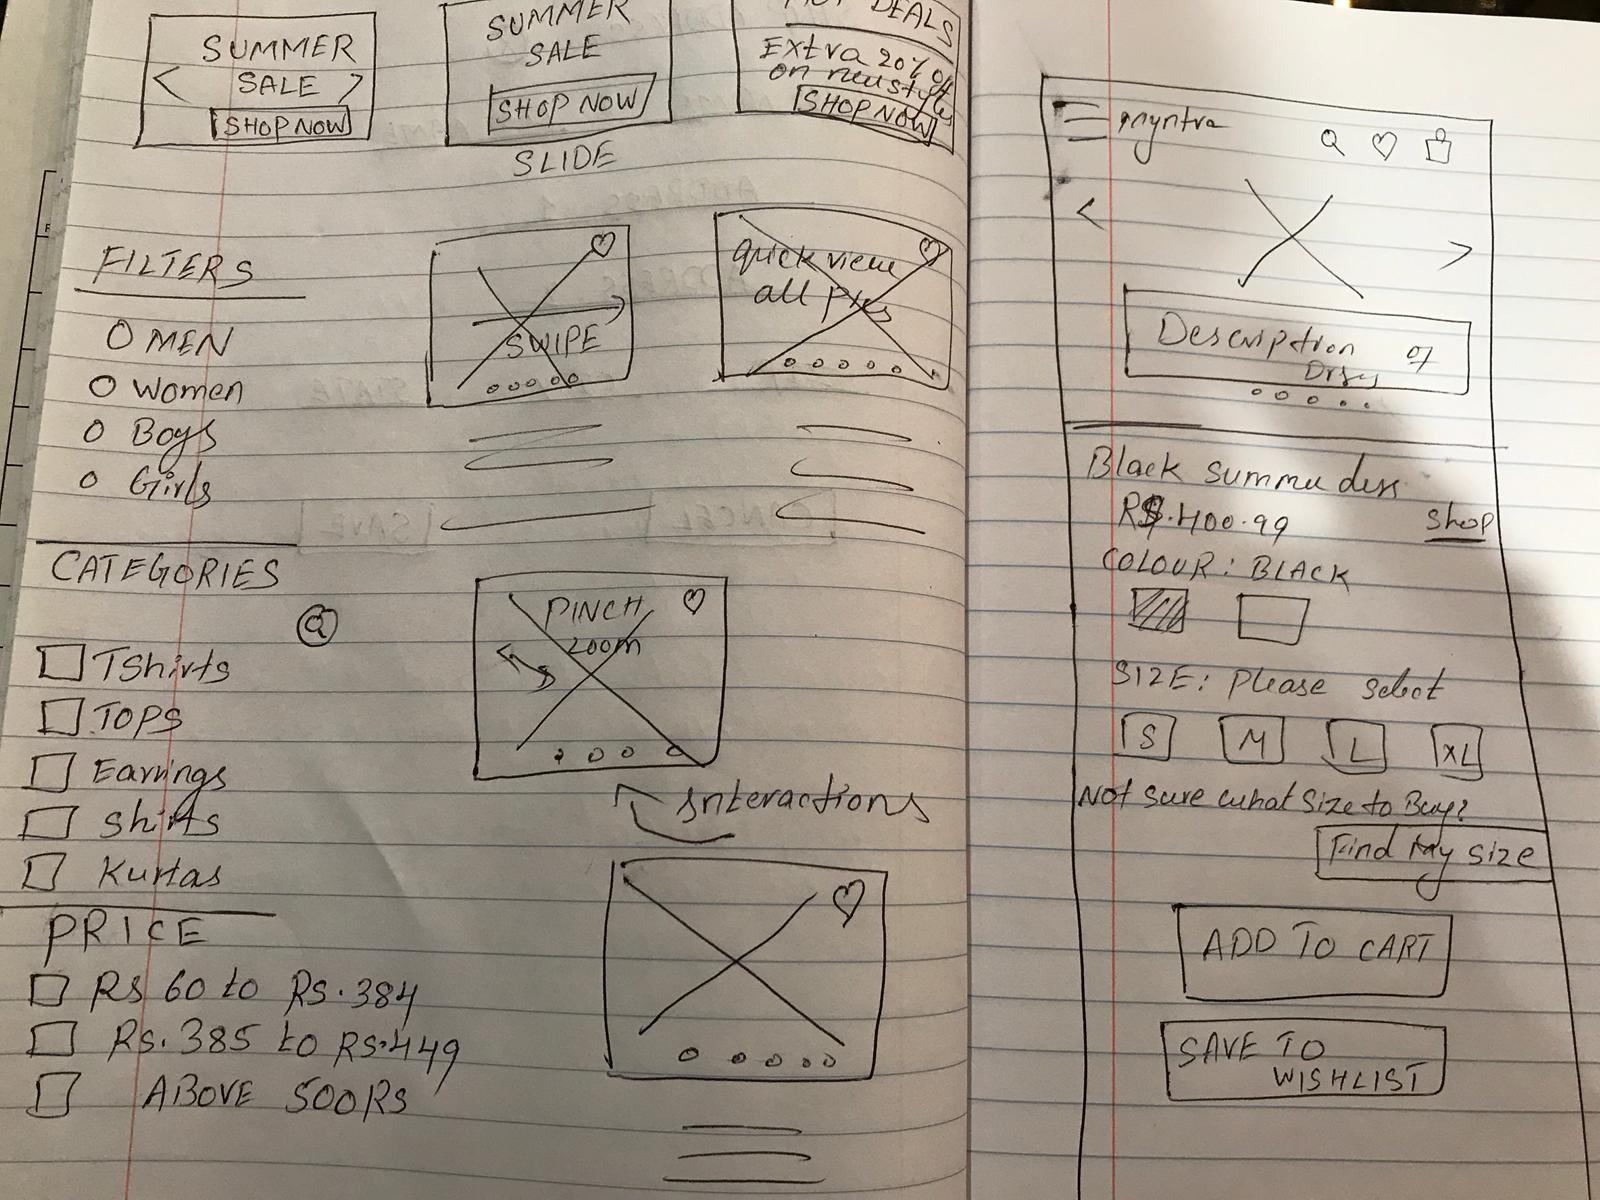 SUMMER
SALE
SHOP NOW
SUMMER
SALE
SHOP NOW
DEALS
Extra 20% off
on new styles
SHOP NOW
SLIDE
FILTERS
MEN
Women
Boys
Girls
SWIPE
quick view
all pics
CATEGORIES
Q
TShirts
TOPS
Earrings
Shirts
Kurtas
PINCH
zoom
Interactions
PRICE
Rs 60 to Rs.384
Rs.385 to Rs.449
ABOVE 500Rs
myntra
Description of
Black summe dess
RS.400.99
Shop
COLOUR: BLACK
SIZE: Please select
S M L XL
Not sure what size to Buy?
Find My size
ADD TO CART
SAVE TO
WISHLIST